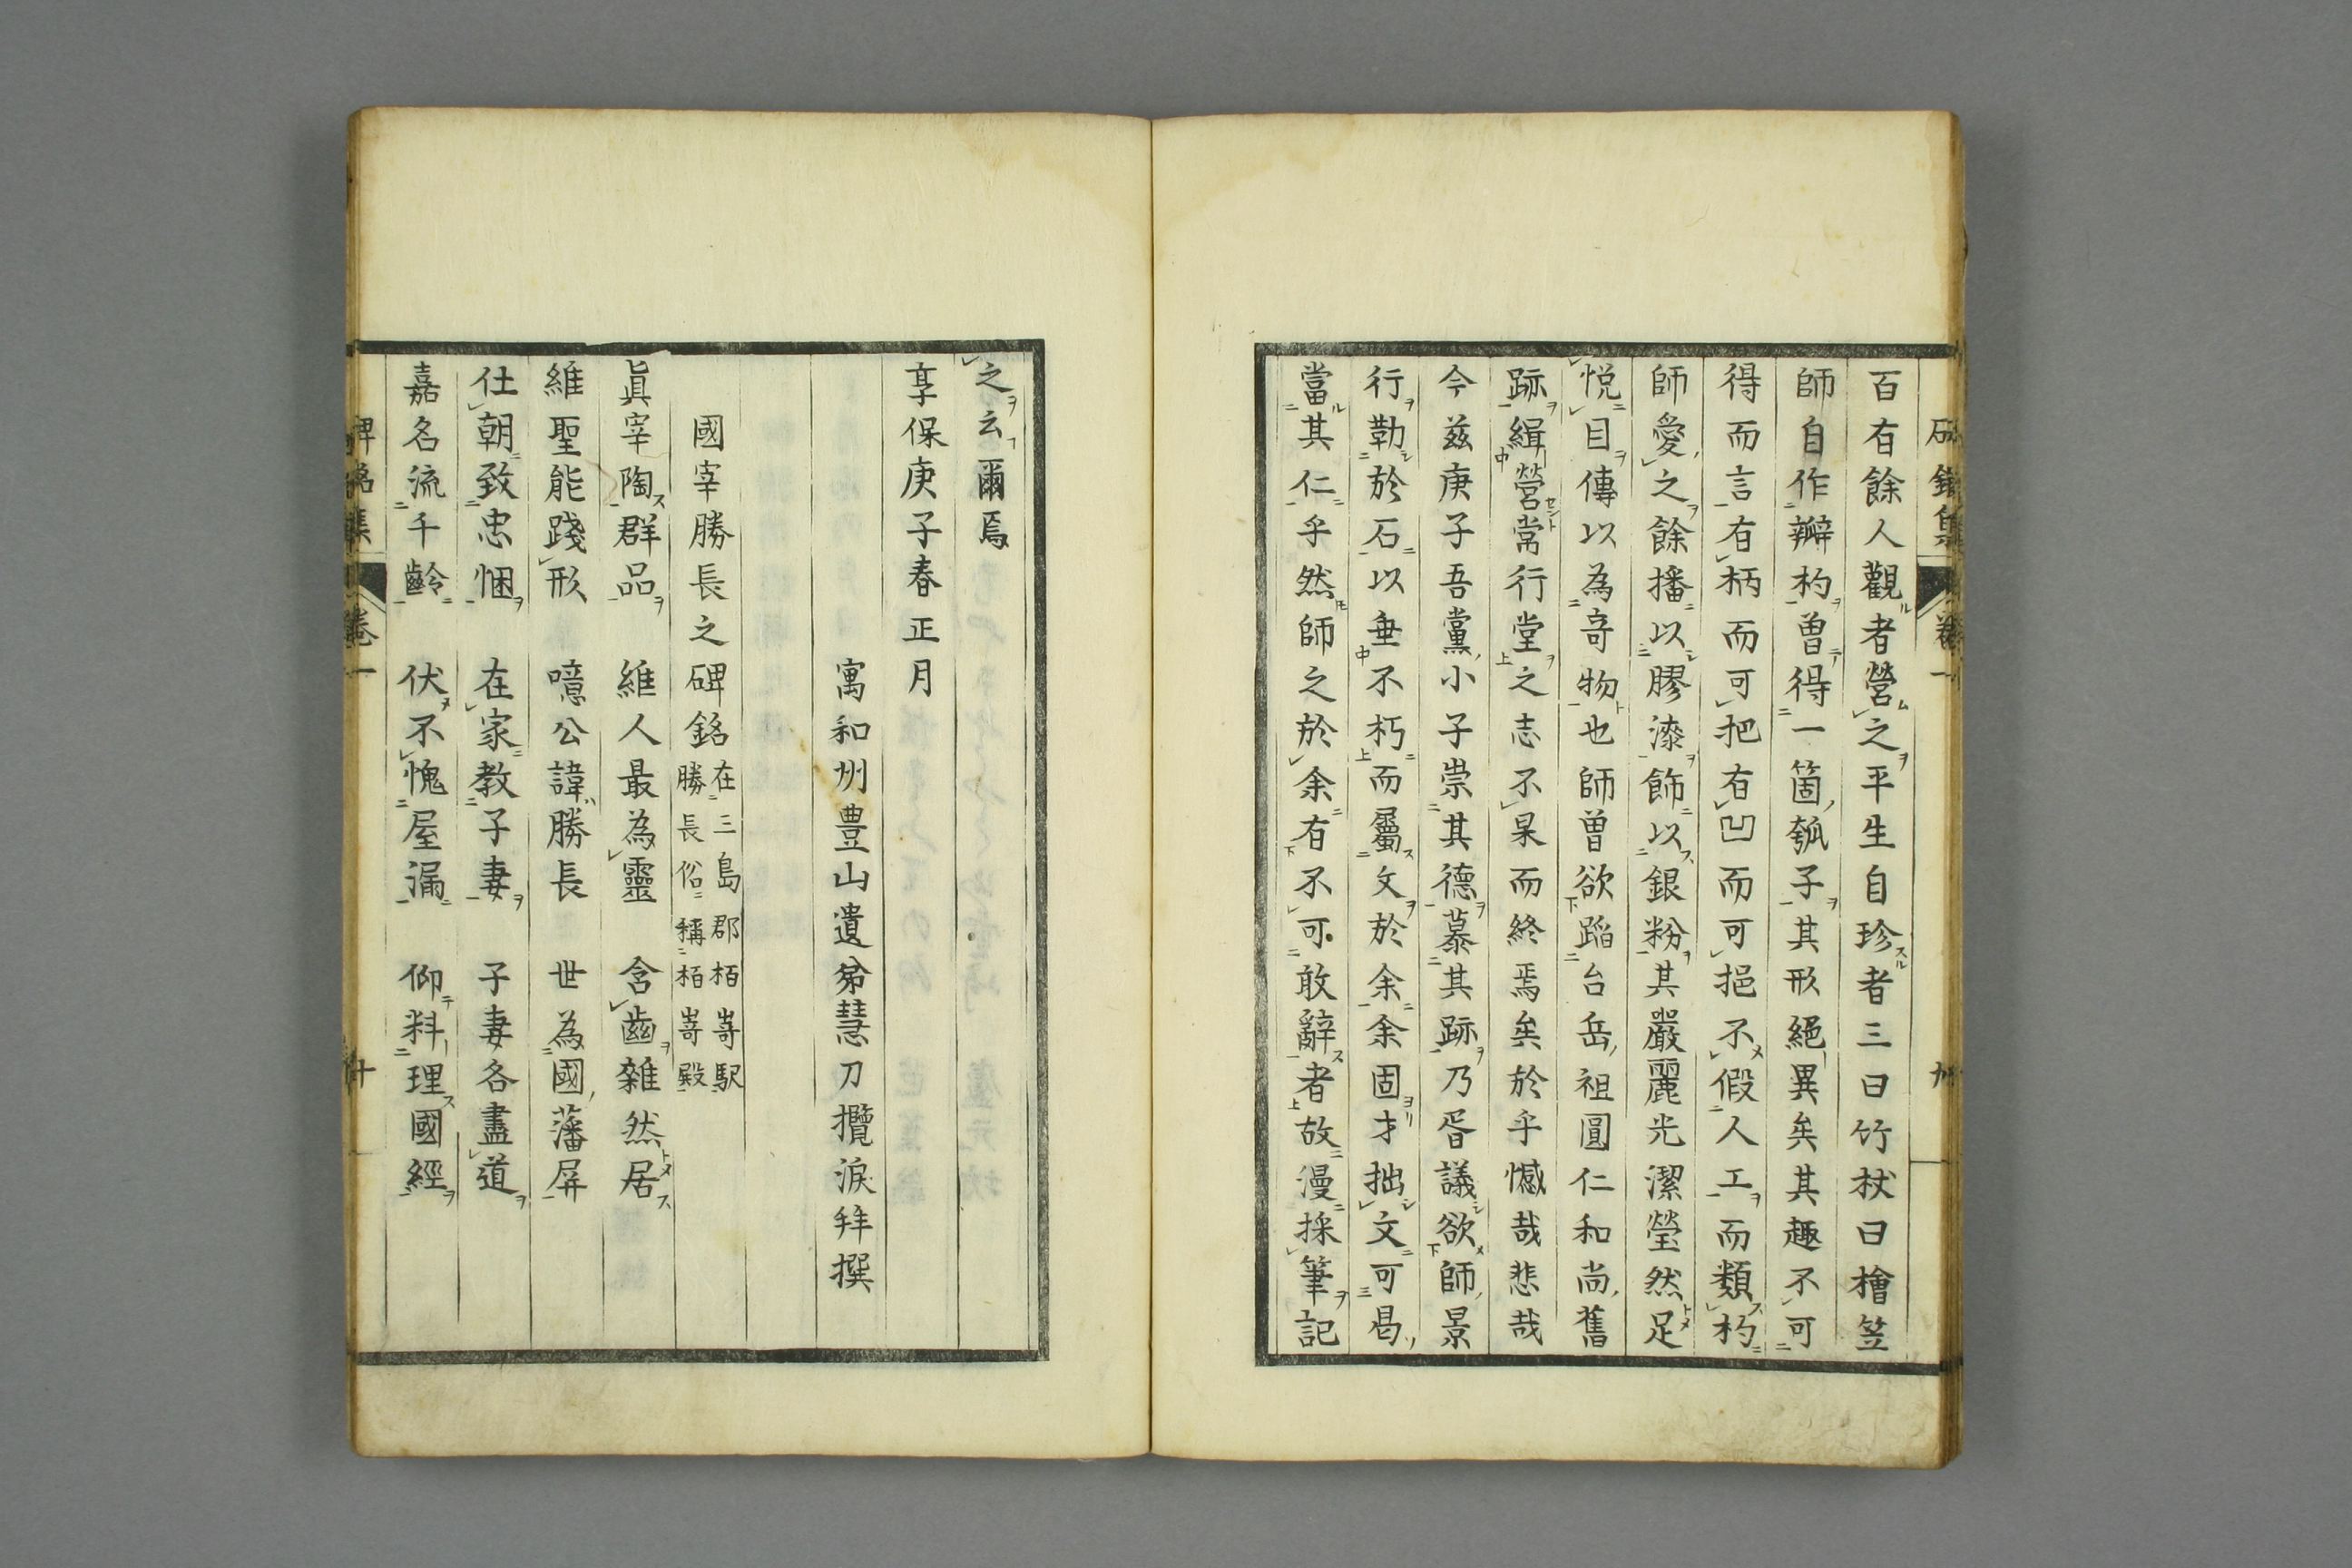 百有餘人觀者營之平生自珍者三曰竹杖曰檜笠
師自作瓣杓曽得一箇瓠子其形絕異矣其趣不可
得而言有柄而可把有凹而可挹不假人工而類杓
師愛之餘播以膠漆飾以銀粉其嚴麗光潔瑩然足
悦目傳以為奇物也師曽欲蹈台岳祖圓仁和尚舊
跡緝營常行堂之志不果而終焉矣於乎憾哉悲哉
今茲庚子吾黨小子崇其德慕其跡乃胥議欲師景
行勒於石以垂不朽而屬文於余余固才拙文可曷
當其仁乎然師之於余有不可敢辭者故漫採筆記
之云爾焉
享保庚子春正月
寓和州豊山遺弟慧刀攬淚拜撰
國宰勝長之碑銘在三島郡栢嵜駅勝長俗稱栢嵜殿
眞宰陶群品 維人最為靈 含齒雜然居
維聖能踐形 噫公諱勝長 世為國藩屏
仕朝致忠悃 在家教子妻 子妻各盡道
嘉名流千齡 伏不愧屋漏 仰料理國經
碑銘集 卷一 十